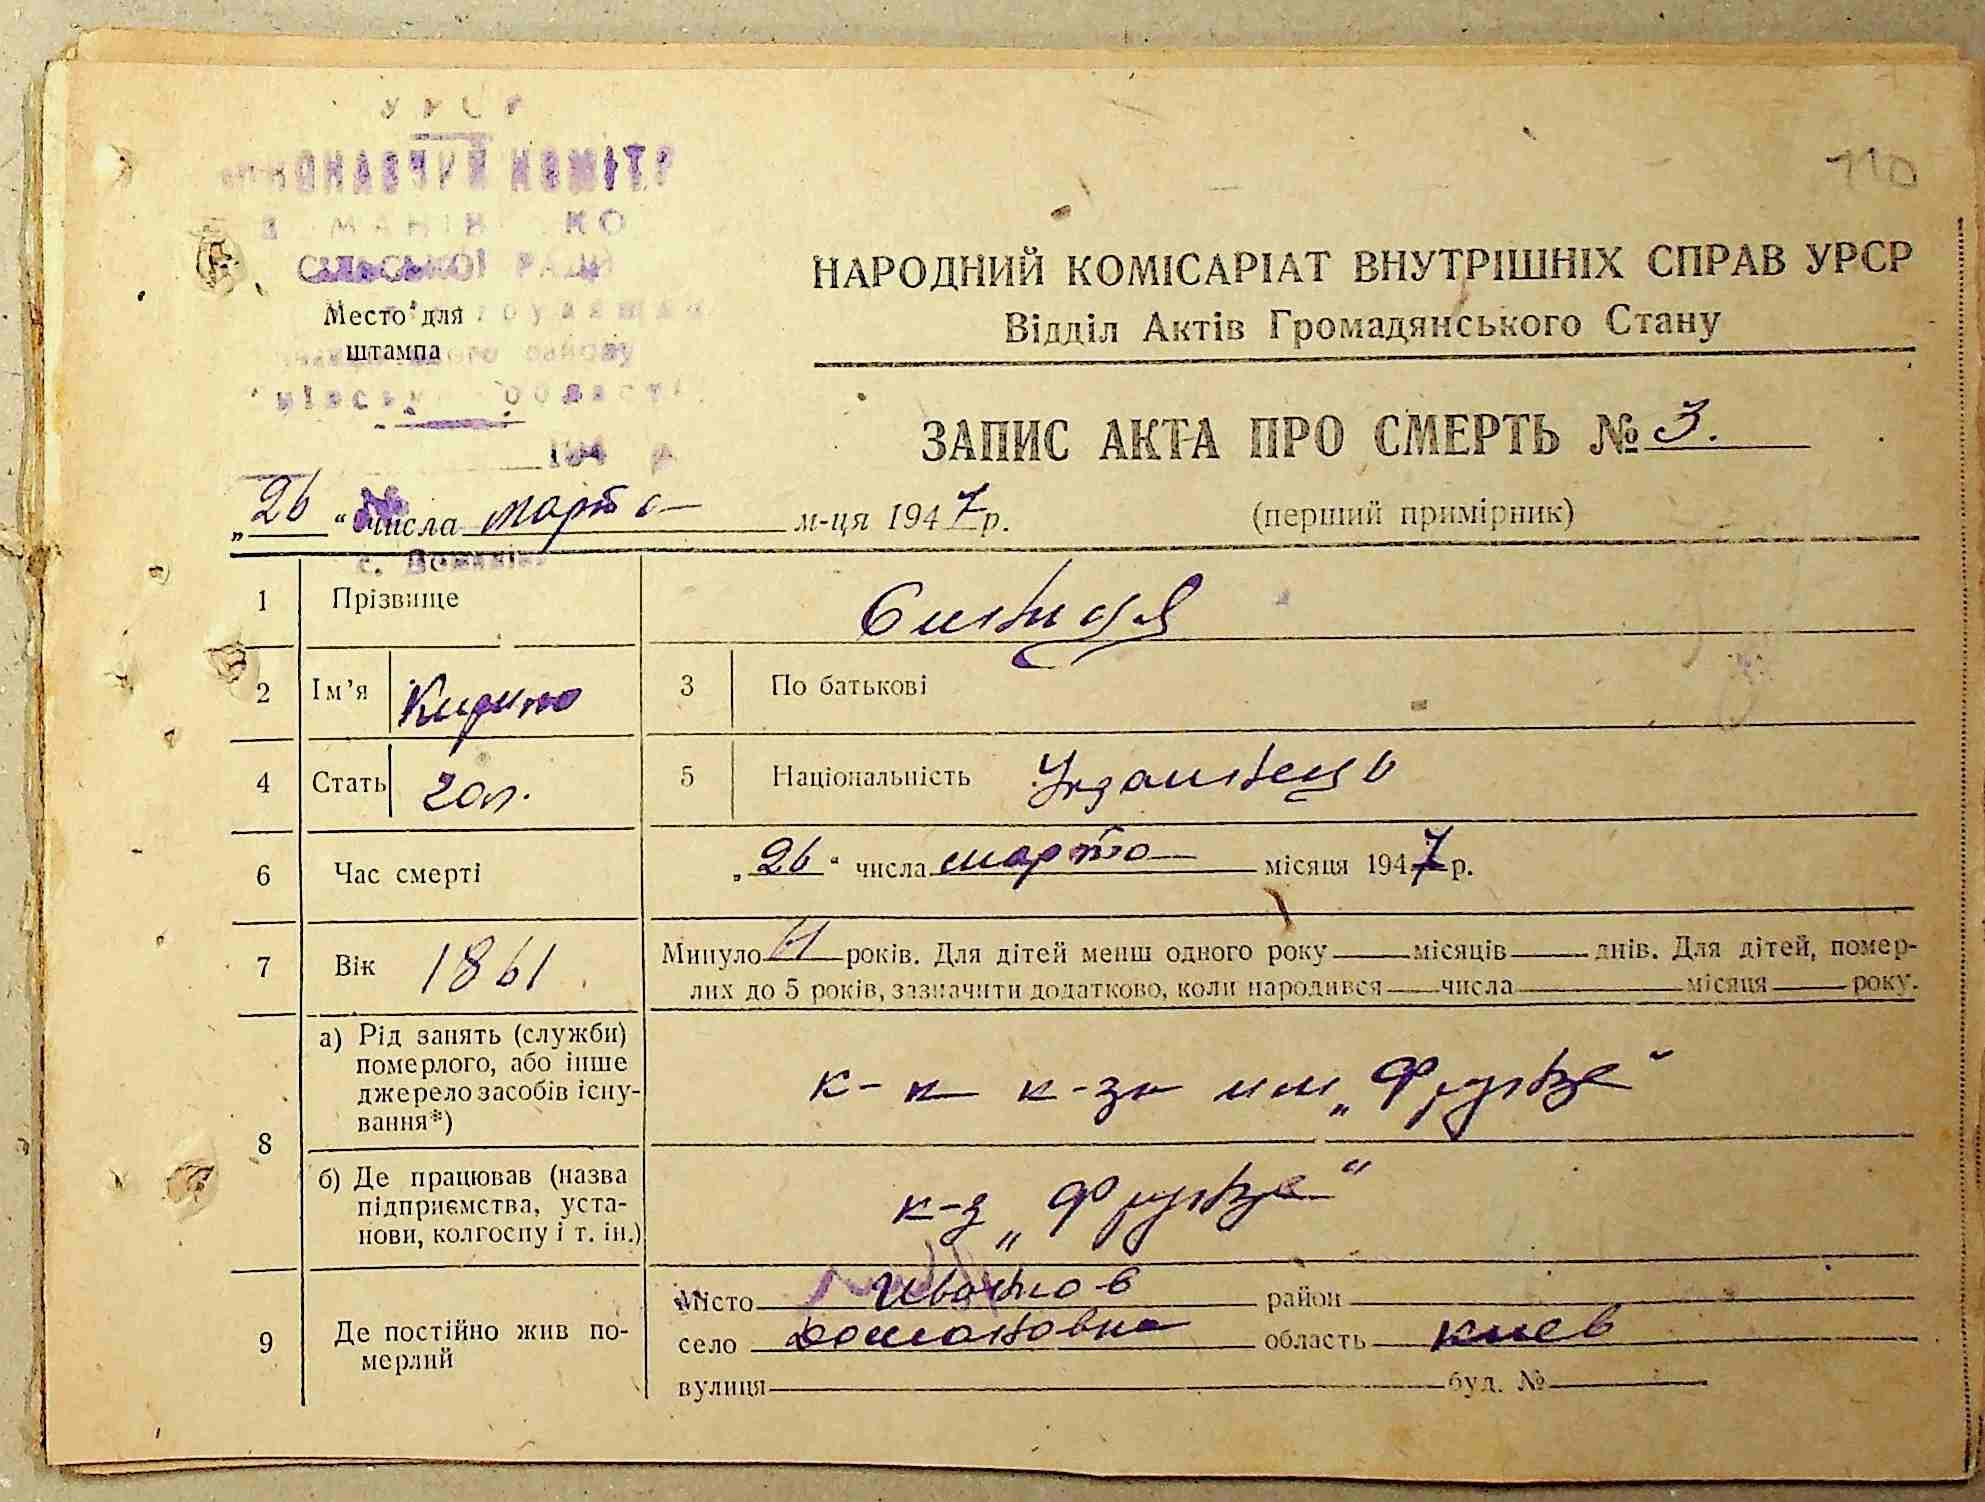 УРСР
ВИКОНАВЧИЙ КОМІТЕТ
СІЛЬСЬКОЇ РАДИ
110
НАРОДНИЙ КОМІСАРІАТ ВНУТРІШНІХ СПРАВ УРСР
Відділ Актів Громадянського Стану
Место для
штампа
району
області
194 р.
ЗАПИС АКТА ПРО СМЕРТЬ № 3.
„26“ числа марта м-ця 1947 р.
(перший примірник)
1 Прізвище
2 Ім’я Кирило 3 По батькові
4 Стать чол. 5 Національність Украинець
6 Час смерті „26“ числа марта місяця 1947 р.
7 Вік 1861 Минуло років. Для дітей менш одного року місяців днів. Для дітей, помер-
лих до 5 років, зазначити додатково, коли народився числа місяця року.
8 а) Рід занять (служби)
померлого, або інше
джерело засобів існу-
вання*)
к-к к-зу им „Фрунзе“
б) Де працював (назва
підприємства, уста-
нови, колгоспу і т. ін.)
к-з „Фрунзе“
9 Де постійно жив по-
мерлий
Місто Иванков район
село Домановка область Киев
вулиця буд. №